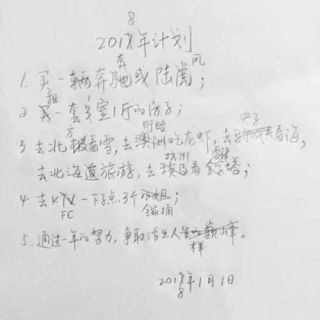 8
2017年计划
奔 风
1. 买一辆奔驰或陆虎;
租
2 买一套3室1厅的房子;
方 盱眙
3 去北极看雪,去澳洲吃龙虾,去看海,
杭州
去北海道旅游,去埃及看金字塔;
4 去KTV一下点3个小姐;
FC 全家桶
5. 通过一年的努力,争取活出人生巅峰。
样
2017年1月1日
8